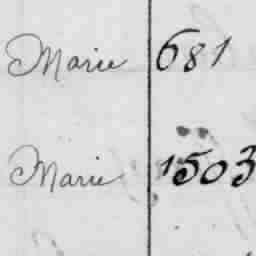 Marie 681
Marie 1503